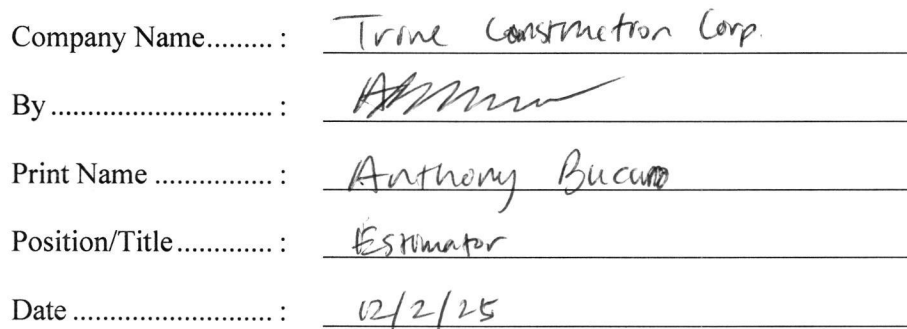 Company Name......... : Trine Construction Corp.
By ............................ :
Print Name ............... : Anthony Bucaro
Position/Title ............ : Estimator
Date ......................... : 12/2/25